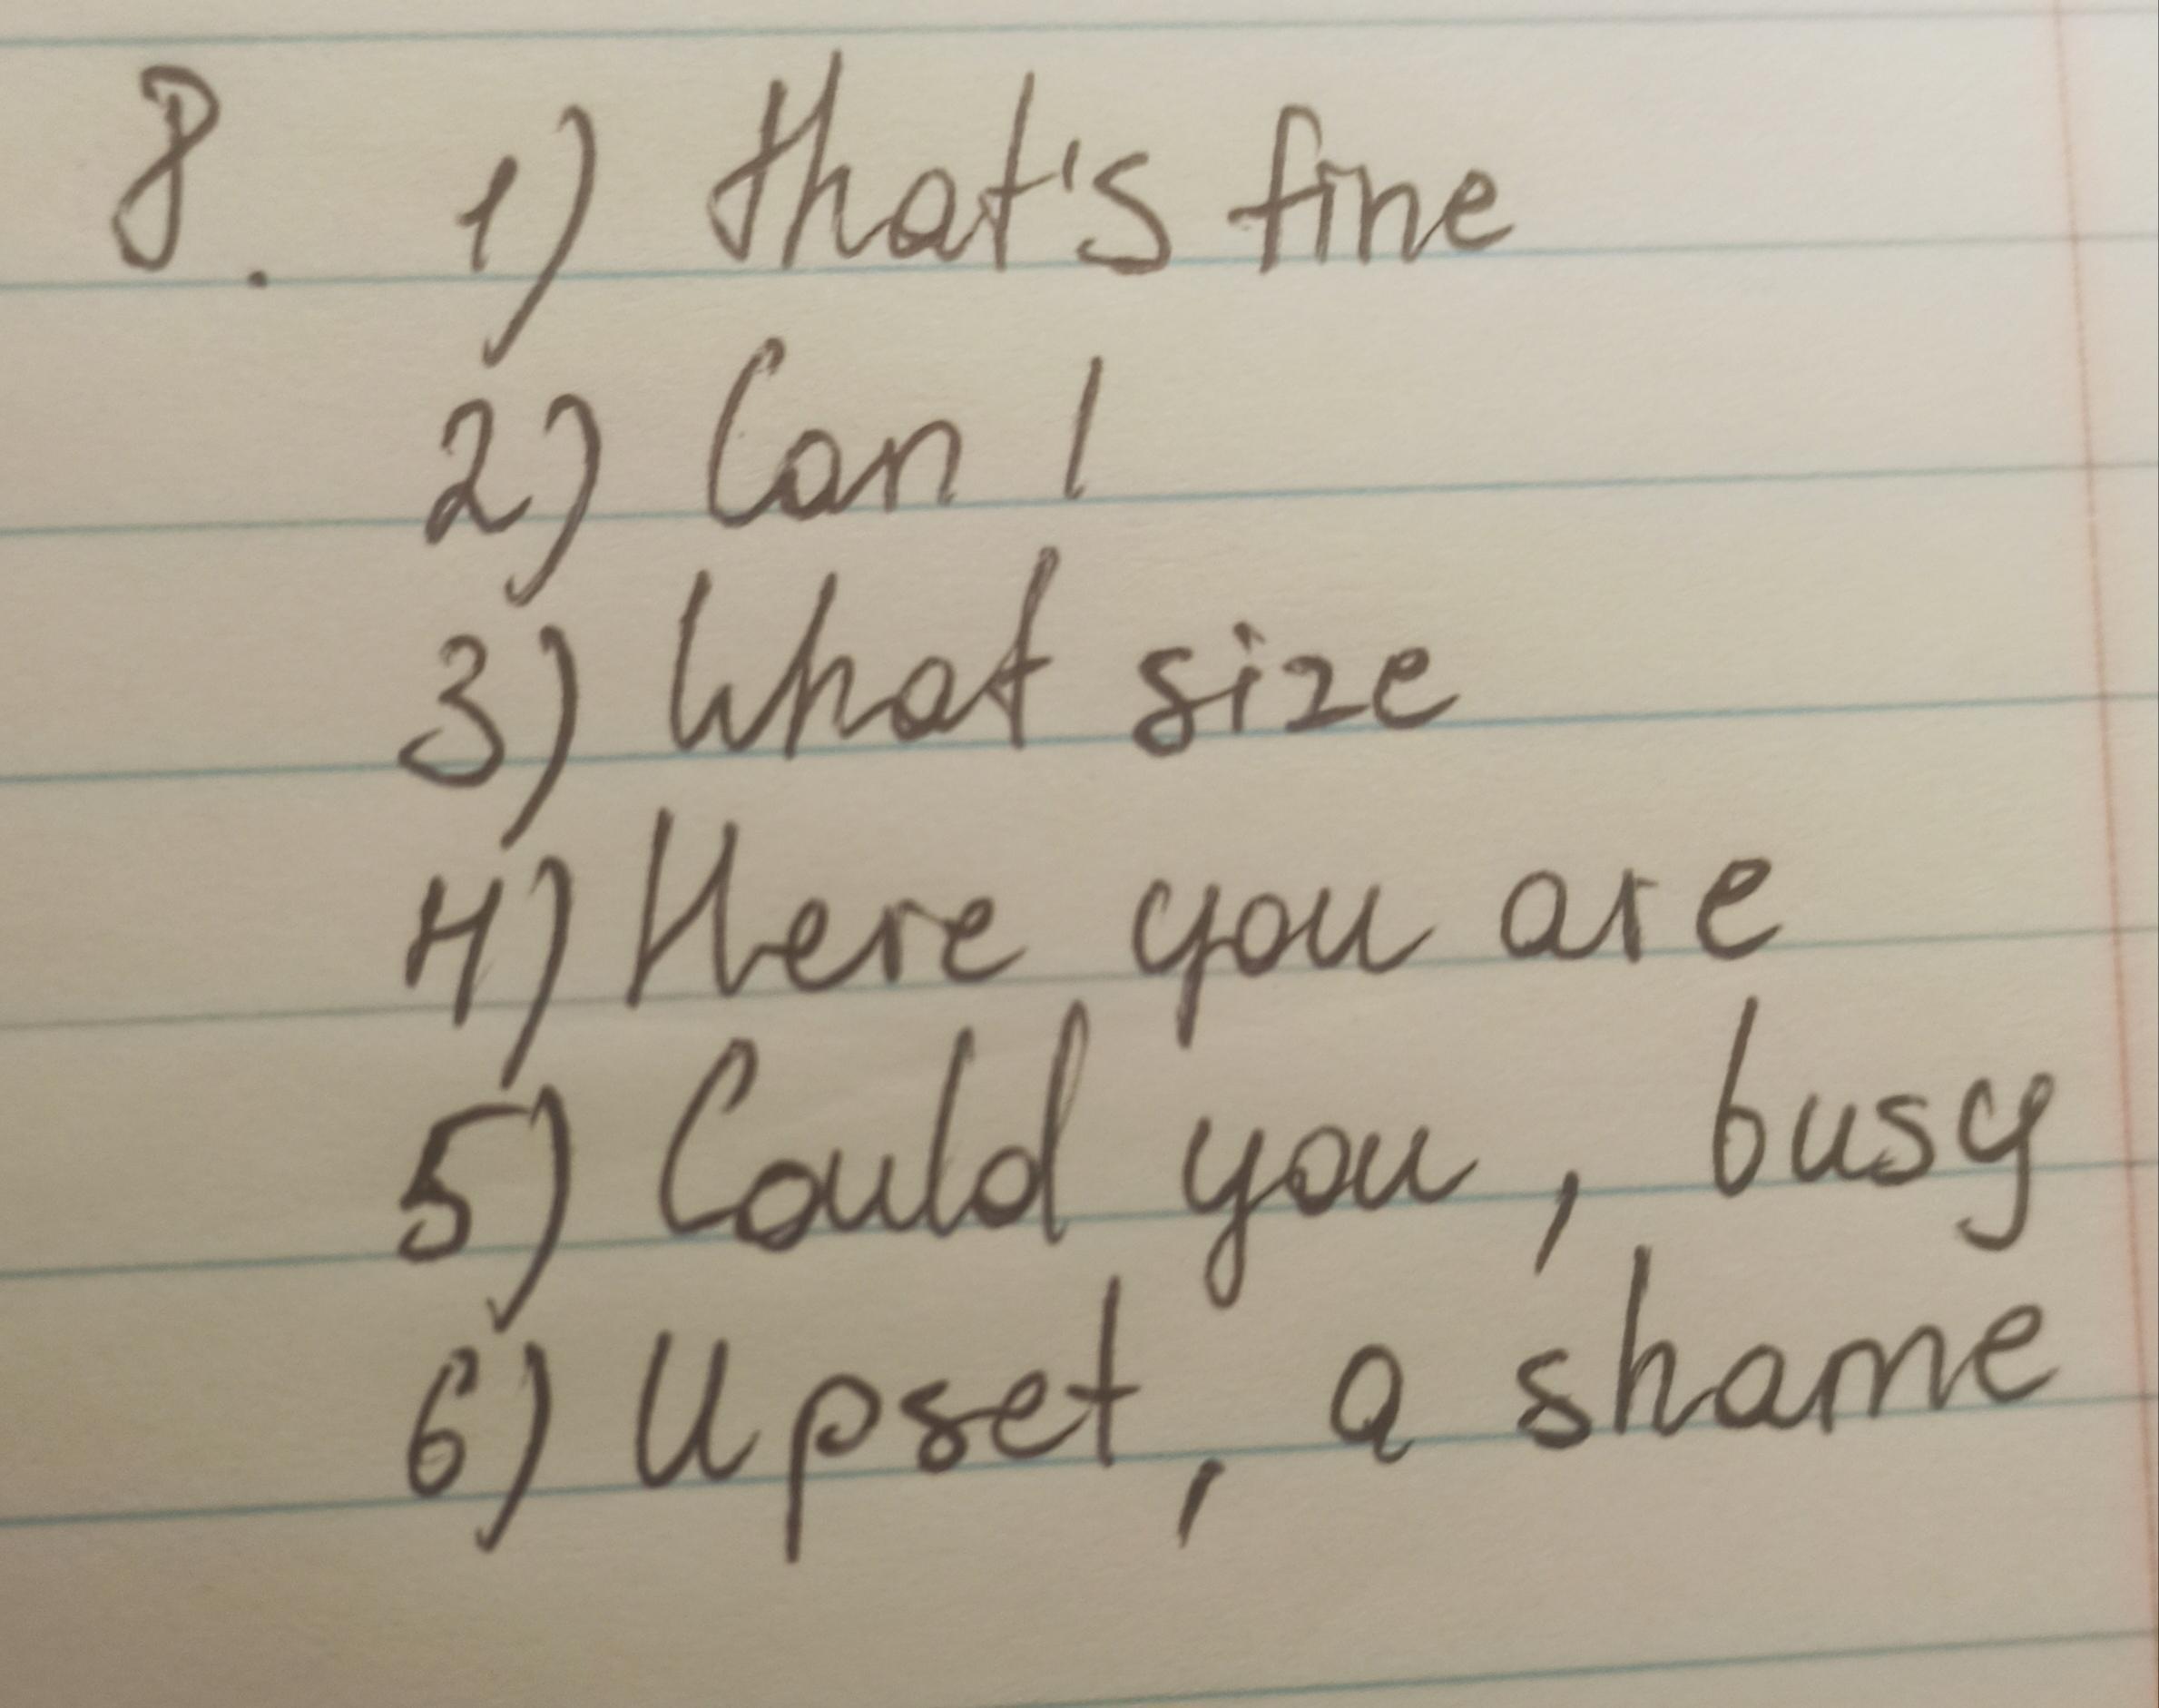 8. 1) that's fine
2) Can I
3) What size
4) Here you are
5) Could you, busy
6) Upset, a shame